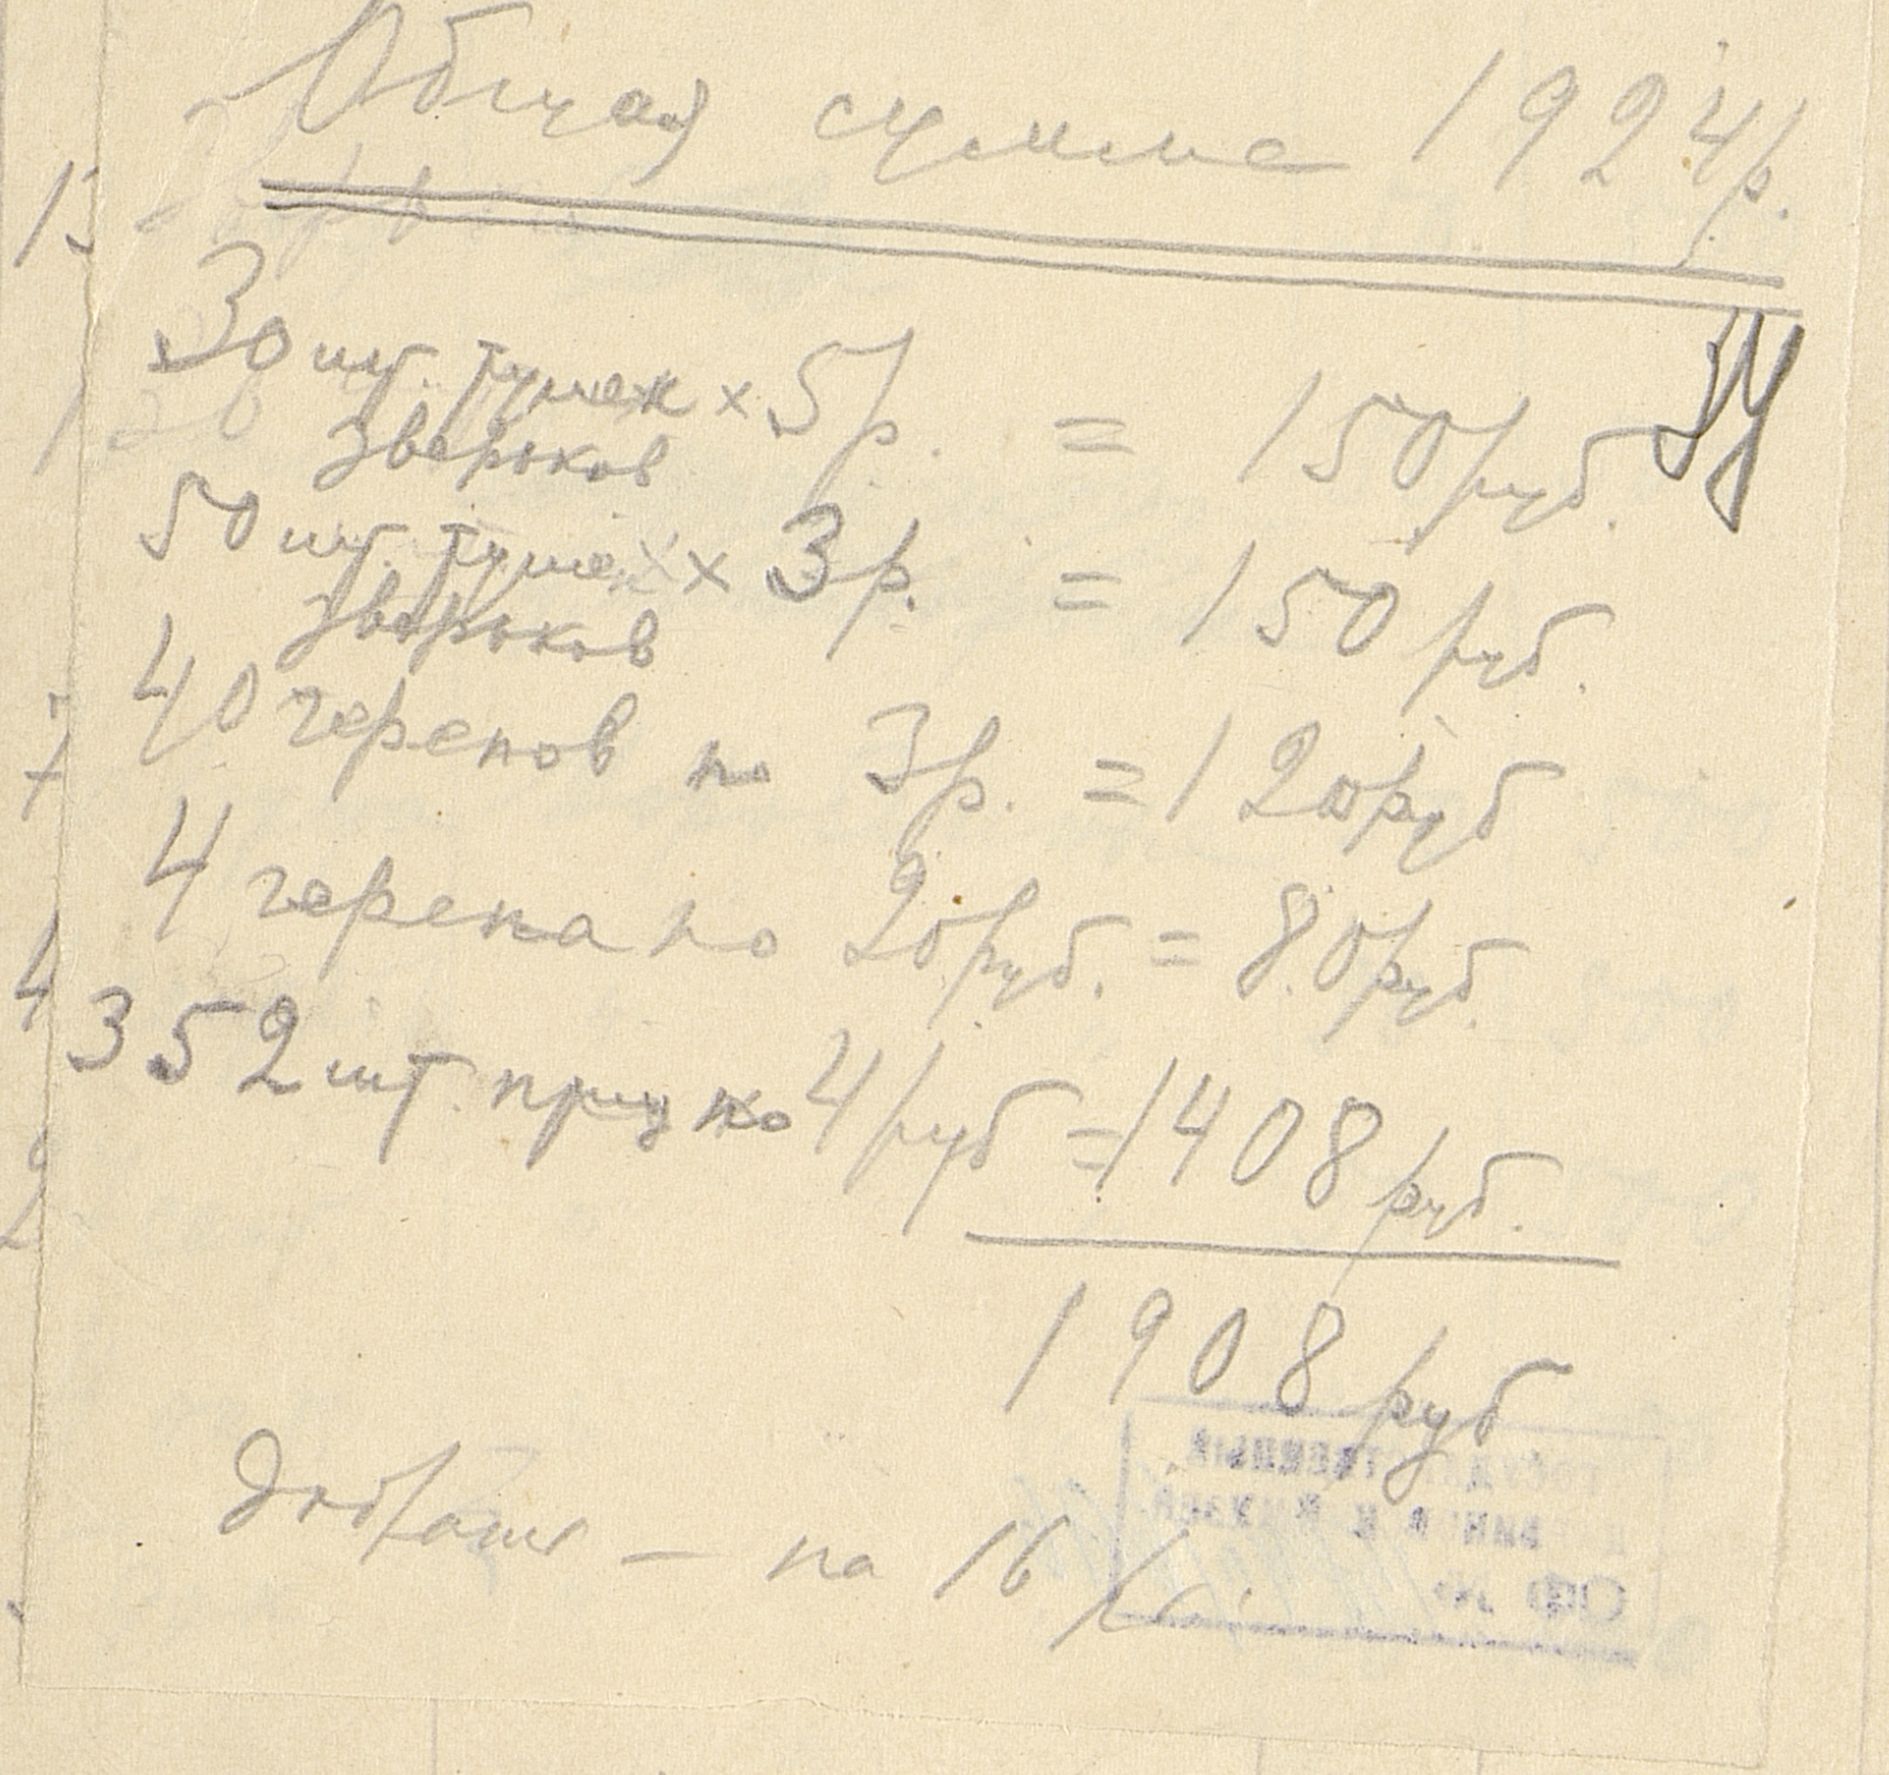 Общая сумма 1924р.
30 шт. тушек × 5р. = 150 руб.
зверьков
50 шт. тушек × 3р. = 150 руб.
зверьков
40 черепов по 3р. = 120 руб
4 черепа по 20 руб. = 80 руб.
352 шт. птиц по 4 руб = 1408 руб.
1908 руб
Добавить — на 16
ГОСУДАРСТВЕННЫЙ
ДАРВИНСКИЙ МУЗЕЙ
ОФ №